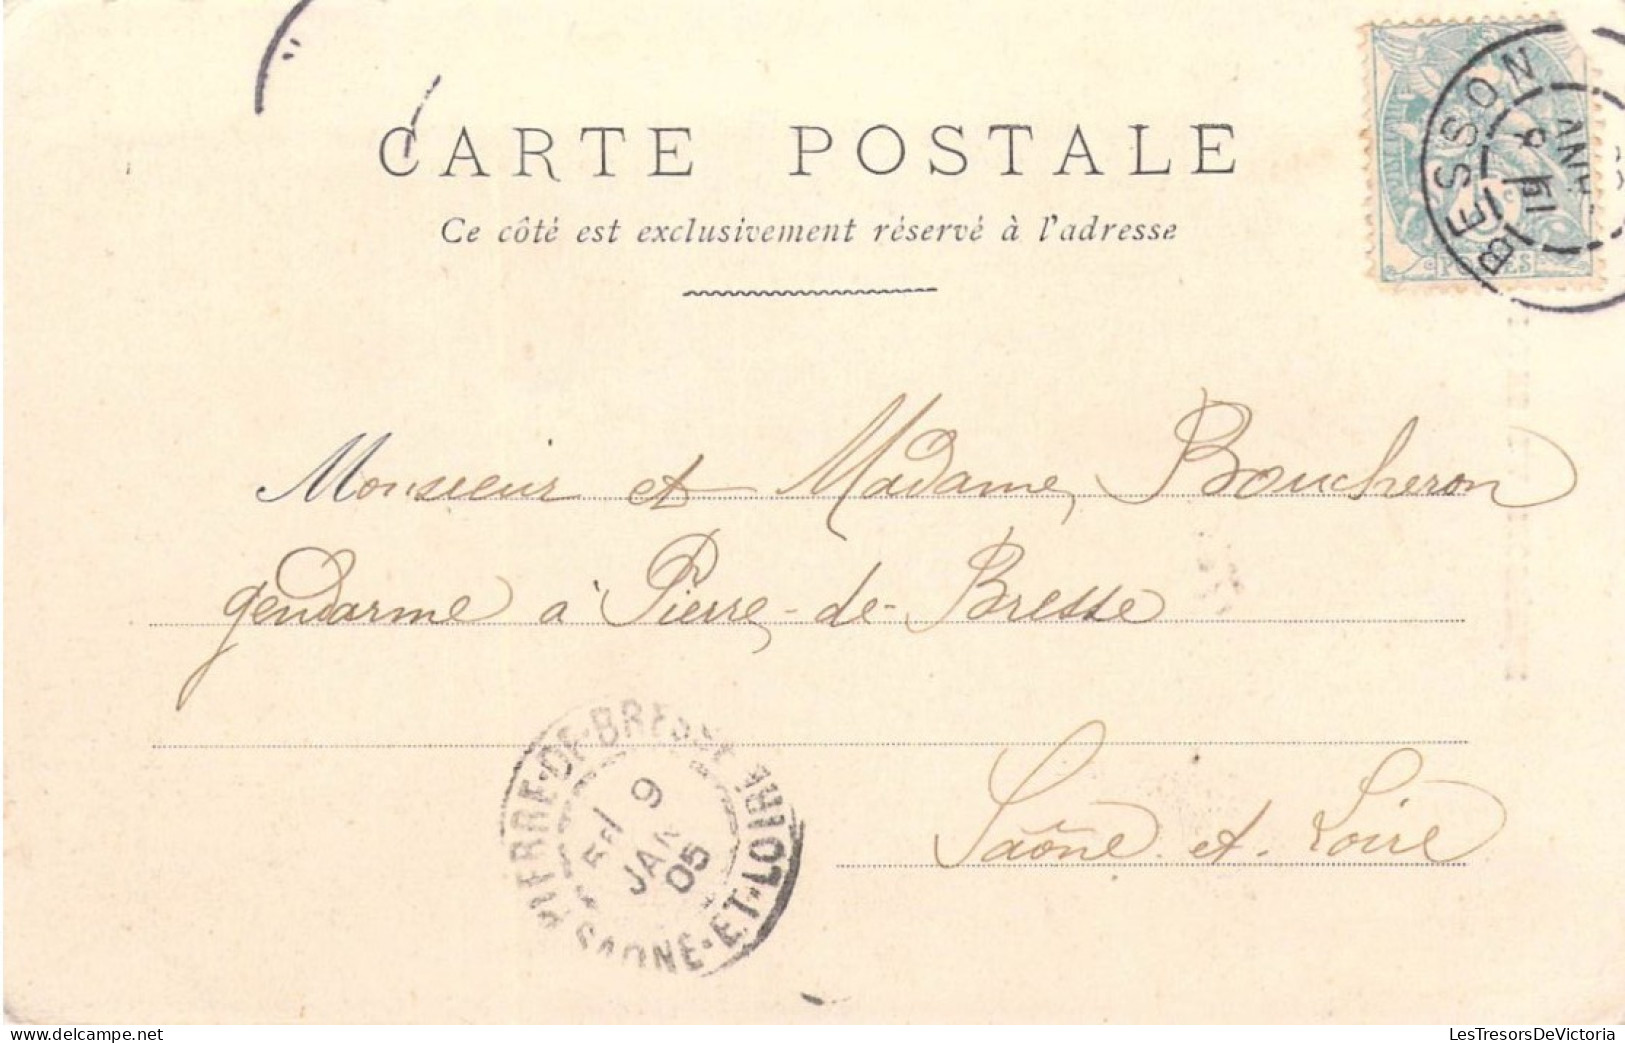 CARTE POSTALE
Ce côté est exclusivement réservé à l'adresse
BESSON
POSTES
Monsieur et Madame Boucheron
gendarme à Pierre-de-Bresse
Saône-et-Loire
PIERRE-DE-BRESSE
9
JAN
05
SAONE-ET-LOIRE
delcampe.net
LesTresorsDeVictoria